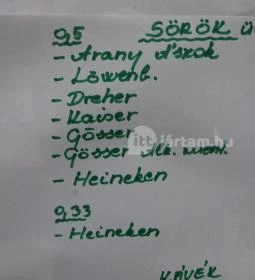 0,5 SÖRÖK ü
- Arany Ászok
- Löwenb.
- Dreher
- Kaiser
- Gösser
- Gösser Alk. ment.
- Heineken
0,33
- Heineken
KÁVÉK
ittjártam.hu